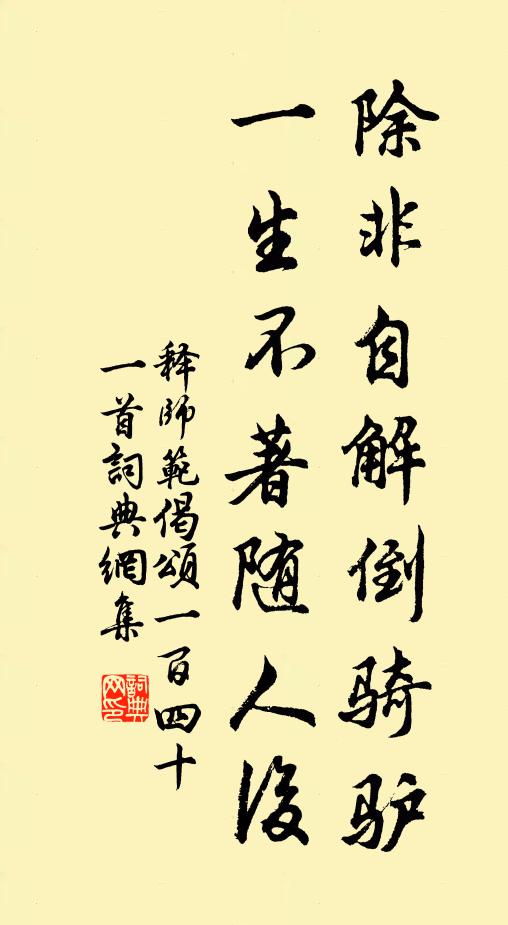 除非自解倒骑驴
一生不著随人後
释師範偈頌一百四十
一首詞典網集
詞典网印